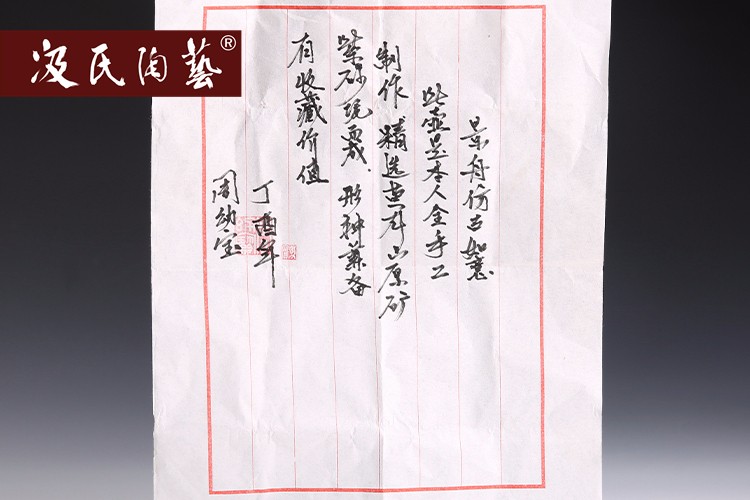 汲氏陶藝®
景舟仿古如意
此壶是本人全手工
制作 精选黄斗山原矿
紫砂烧成.形神兼备
有收藏价值
丁酉年
周幼宝